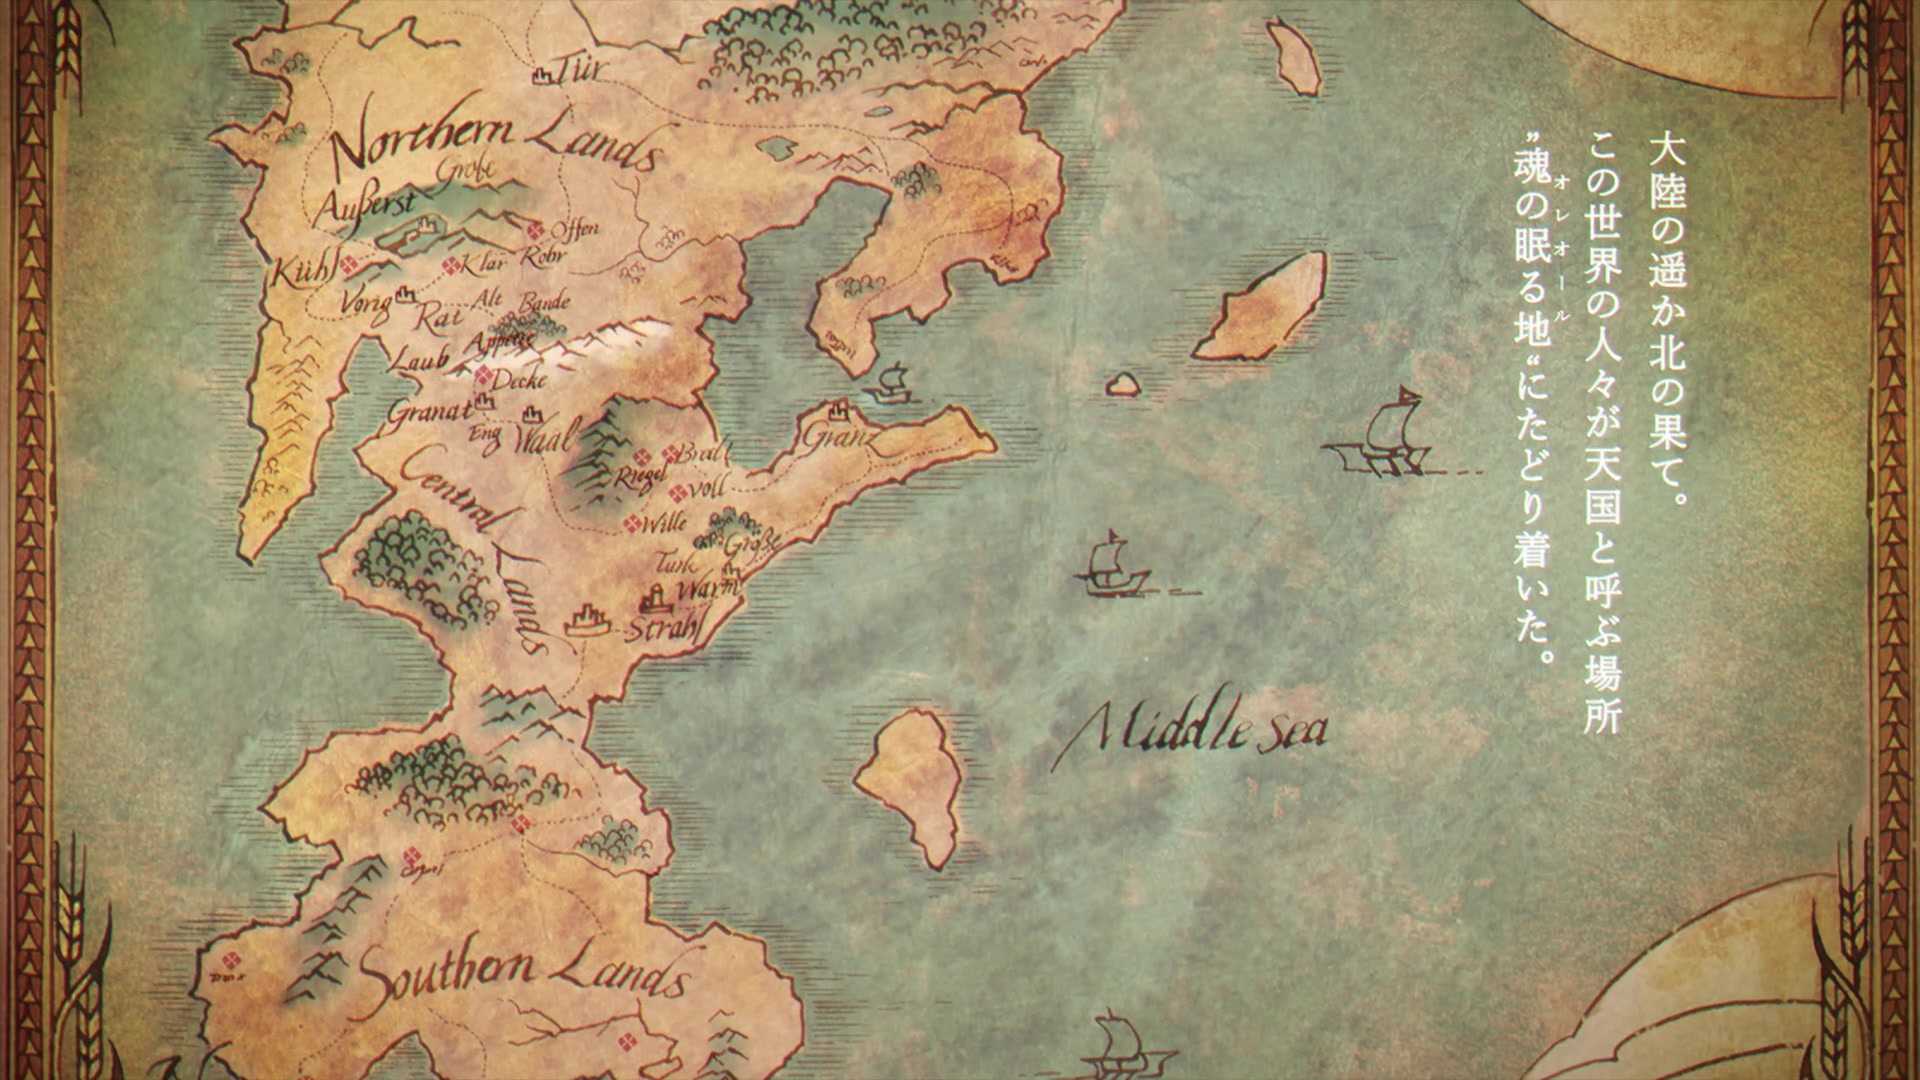 大陸の遥か北の果て。
この世界の人々が天国と呼ぶ場所
オレオール
”魂の眠る地“にたどり着いた。
Tür
Northern Lands
Große
Außerst
Offen
Kühl
Klar
Rohr
Vorig
Rat
Alt
Bande
Appetit
Laub
Decke
Granat
Eng
Waal
Granz
Riegel
Breit
Voll
Central Lands
Wille
Große
Turk
Warm
Strahl
Middle Sea
Southern Lands